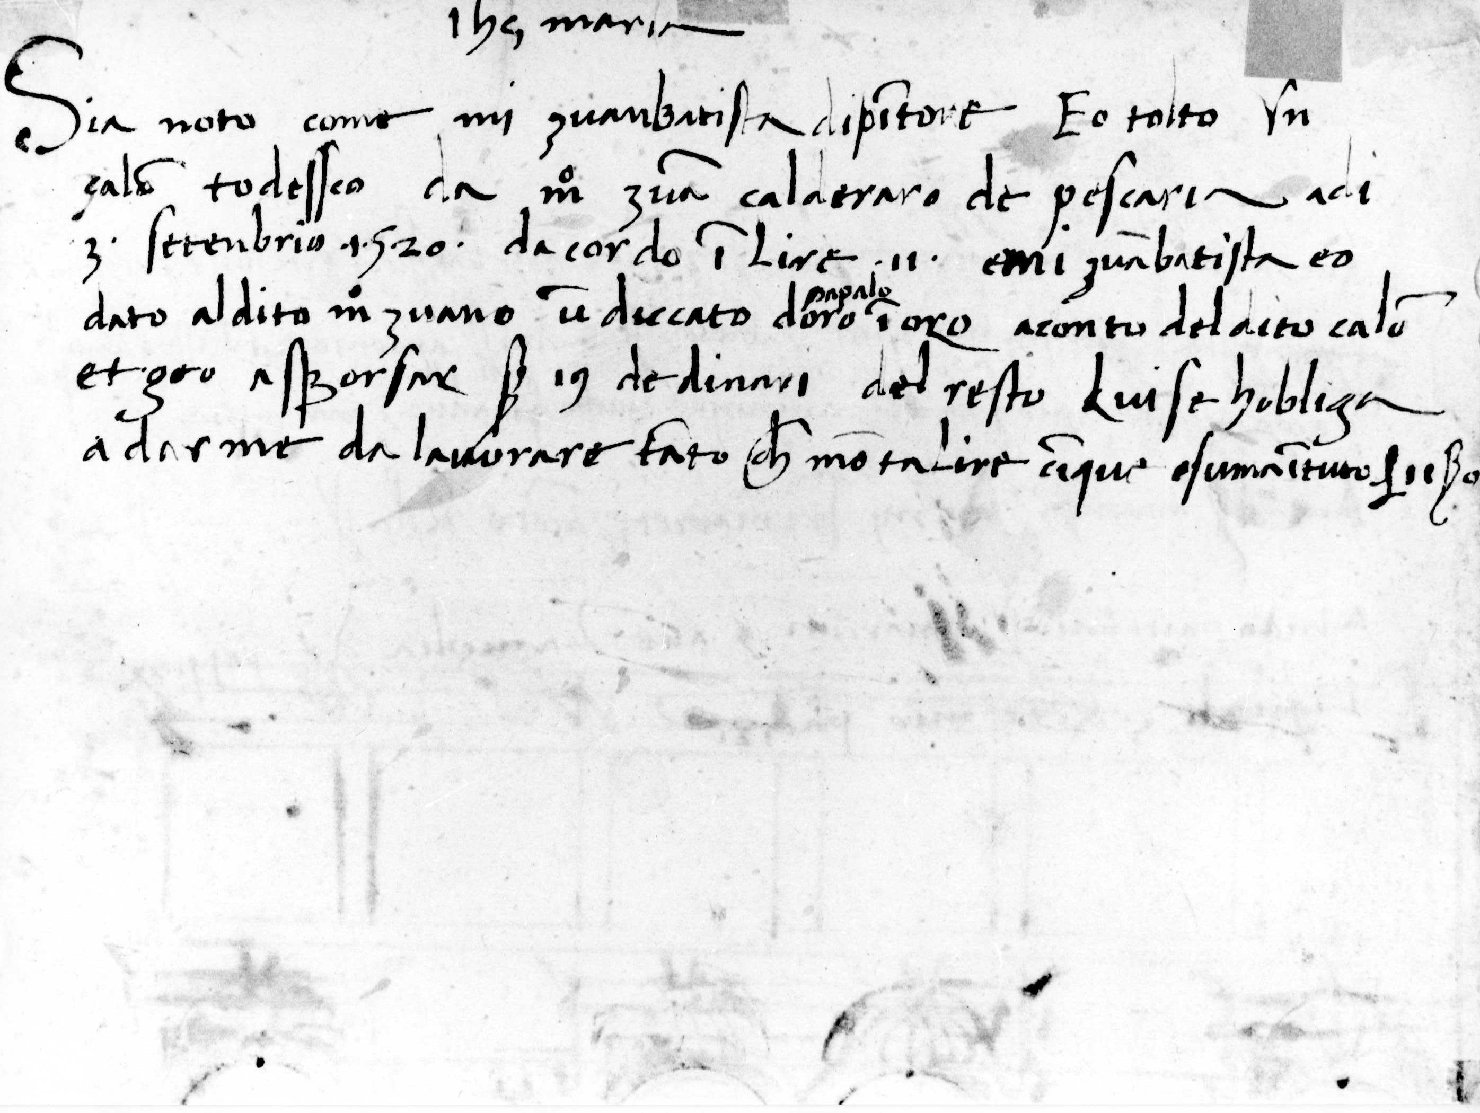 Ihs maria
Sia noto come mi zuanbatista dipītore Eo tolto Vn
çalō todessco da mº zuā calderaro de pescaria adi
3· setenbrio ·1·520· dacordo ī Lire ·11· emi zuābatista eo
papalo
dato aldito mº zuano ū duccato doro ī oro aconto deldito calō
et geo a 19 dedinari del resto Luise hobliga
adarme da lavorare tāto ch mōta Lire cīque esumaītuto 11